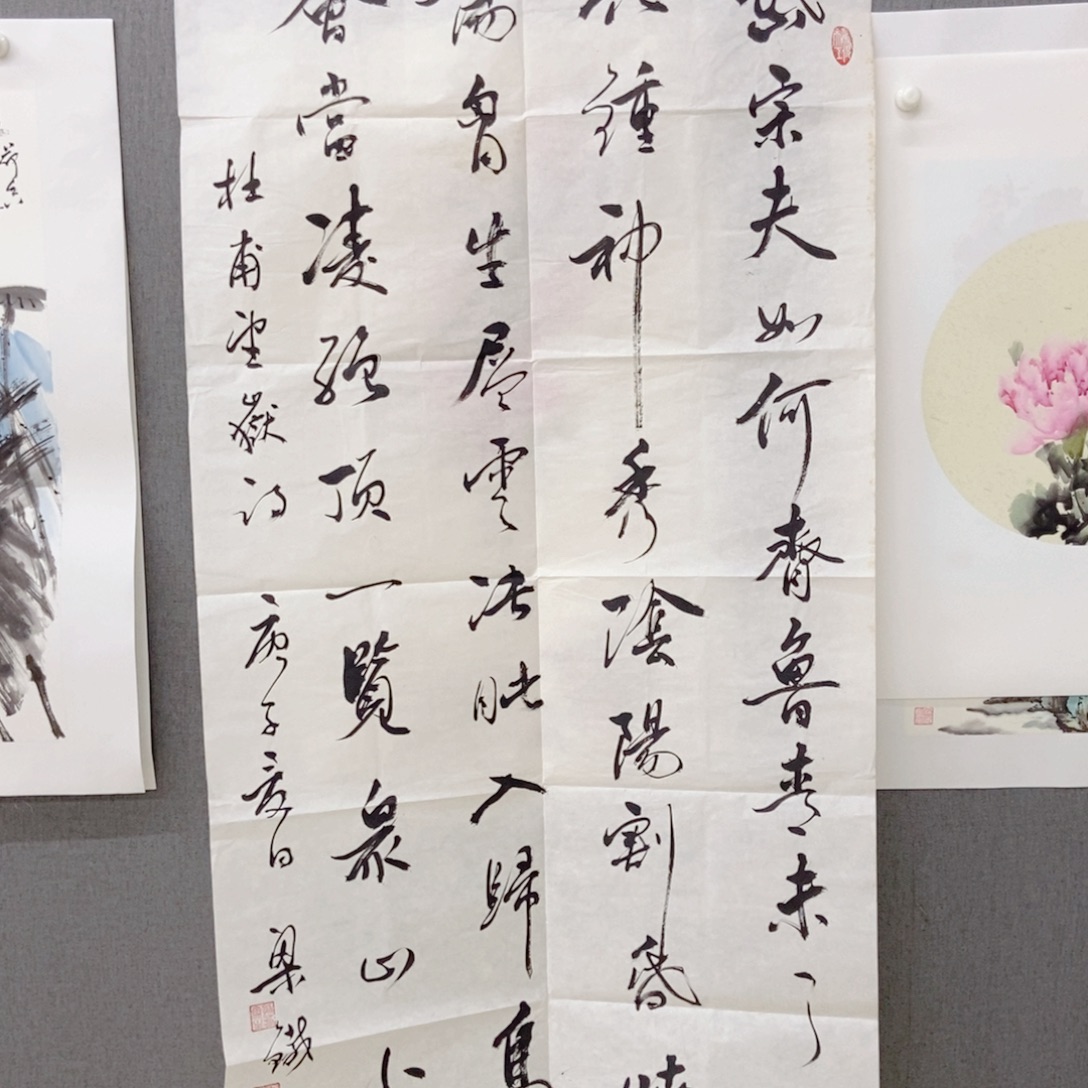 岱宗夫如何齊魯青未了
化鍾神秀陰陽割昏曉
盪胸生層雲決眥入歸鳥
會當凌絕頂一覽眾山小
杜甫望嶽詩 庚子夏日 梁鐵